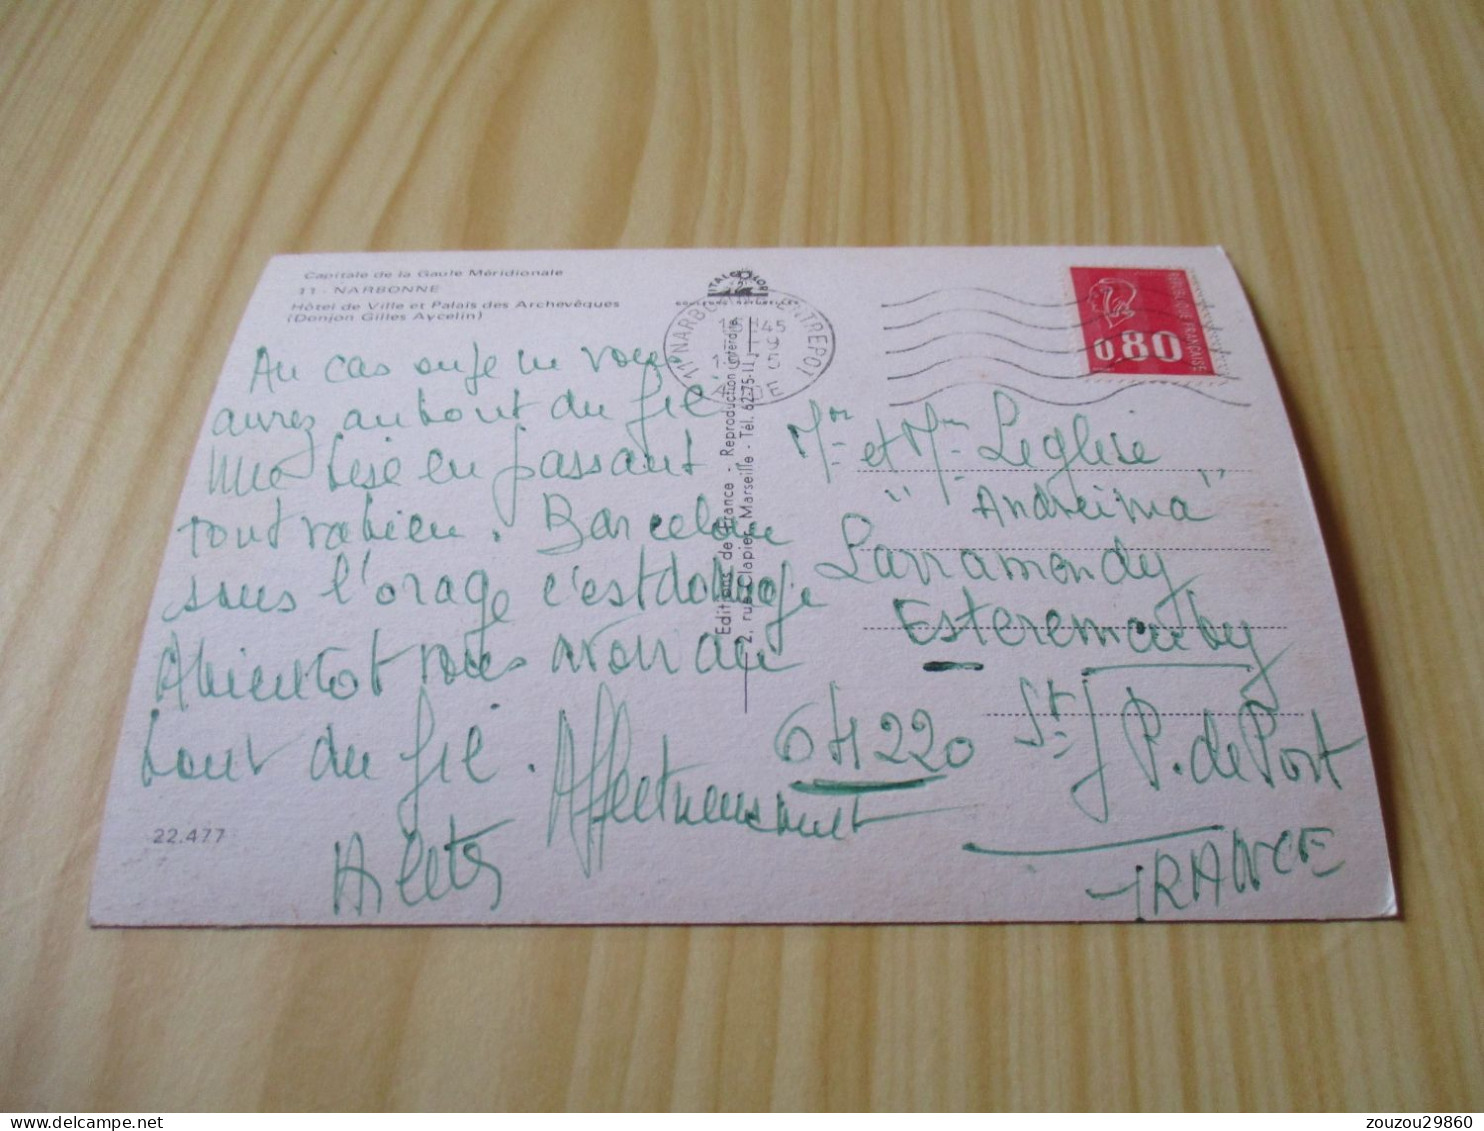 Capitale de la Gaule Méridionale
11 - NARBONNE
Hôtel de Ville et Palais des Archevêques
(Donjon Gilles Aycelin)
Au cas ou je ne vous
aurez au bout du fil
une bise en passant
tout va bien. Barcelone
sous l'orage c'est dommage
A bientot vous avoir au
bout du fil.
Affectueusement
22.477
Editions de France - Reproduction interdite
2, rue Clapier, Marseille - Tél. 62-75-11
11 NARBONNE ENTREPOT
AUDE
0,80
REPUBLIQUE FRANÇAISE
Mr et Mme Leglise
"Andreinia"
Larramondy
Esterencuby
64220 St J P. de Port
FRANCE
zouzou29860